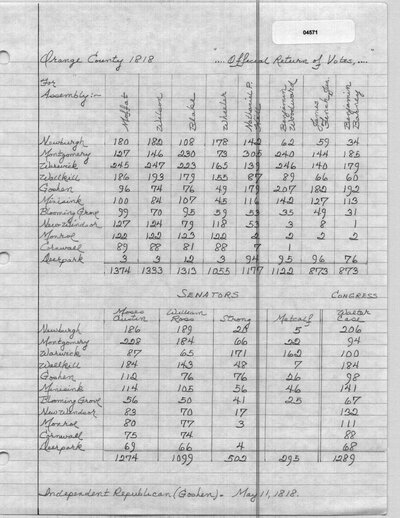 04571
Orange County 1818 ".... Official Return of Votes, ...."
For
Assembly:-
Moffat Wilson Blake Wheeler Nathaniel P. Benjamin Woodward James Finch Jr. Benjamin Barney
Newburgh 180 180 108 178 142 62 59 34
Montgomery 127 146 230 73 305 240 144 185
Warwick 245 247 223 165 139 246 140 179
Wallkill 186 193 179 155 87 89 66 60
Goshen 96 74 76 49 179 207 182 192
Minisink 100 84 107 45 116 142 127 113
Blooming Grove 99 70 95 59 53 35 49 31
New Windsor 127 124 79 118 53 3 8 1
Monroe 122 122 123 122 2 2 2 2
Cornwall 89 88 81 88 7 1
Deerpark 3 3 12 3 94 95 96 76
1374 1333 1313 1055 1177 1122 873 873
SENATORS CONGRESS
Moses Austin William Ross Strong Metcalf Walter Case
Newburgh 186 189 28 5 206
Montgomery 228 184 66 22 94
Warwick 87 65 171 162 100
Wallkill 184 143 48 7 184
Goshen 112 76 76 26 98
Minisink 114 105 56 46 141
Blooming Grove 56 50 41 25 67
New Windsor 83 70 17 132
Monroe 80 77 3 111
Cornwall 75 74 88
Deerpark 69 66 4 68
1274 1099 502 295 1289
Independent Republican (Goshen) - May 11, 1818.